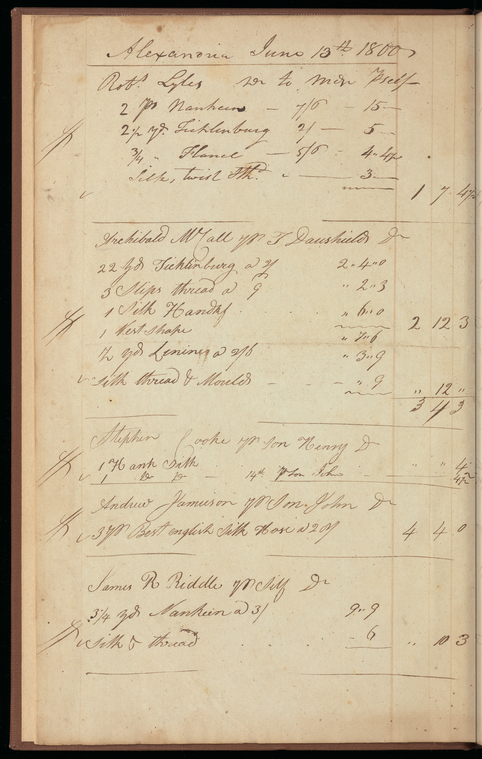 Alexandria June 13th 1800
Robt Lyles Dr to mdse Pself
2 ps Nankeen — 7/6 — 15 —
2 1/2 yd. Ticklinburg 2/ — 5 —
3/4 " Flanel — 5/6 — 4 " 4 1/2
Silk, twist & thd " — 3 — 1 7 4 1/2
Archibald McCall pr T Daushields Dr
22 yds Ticklinburg a 2/ 2 " 4 " 0
3 Slips thread a 9 " 2 " 3
1 Silk Handkf " 6 " 0 2 12 3
1 Vest shape " 7 " 6
1/2 yds Lening a 2/6 " 3 " 9
Silk thread & Moulds " 9 " 12 "
3 4 3
Stephen Cooke pr Son Henry Dr
1 Hank Silk " " 4
1 Do Do — 14th P Son John — 4 1/2
Andrew Jamieson pr Son John Dr
3 pr Best english Silk Hose a 28/ 4 4 0
James R Riddle pr Self Dr
3 1/4 yds Nankein a 3/ 9 " 9
Silk & thread — 6 " 10 3